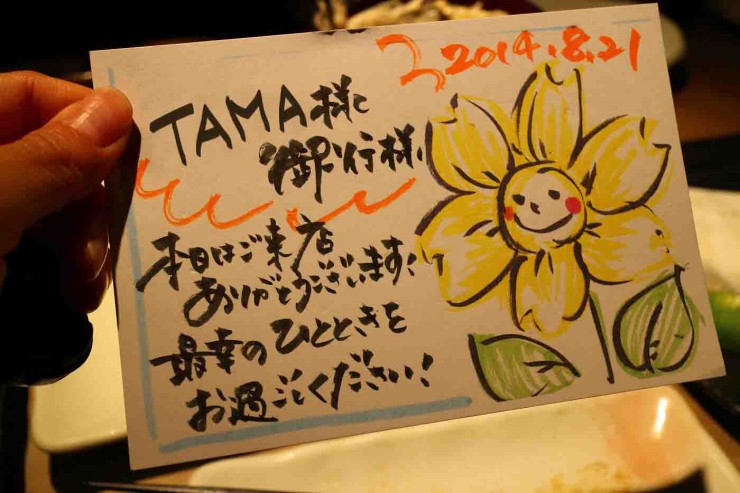 2014.8.21
TAMA様と
御一行様
本日はご来店
ありがとうございます!
最幸のひとときを
お過ごしください!